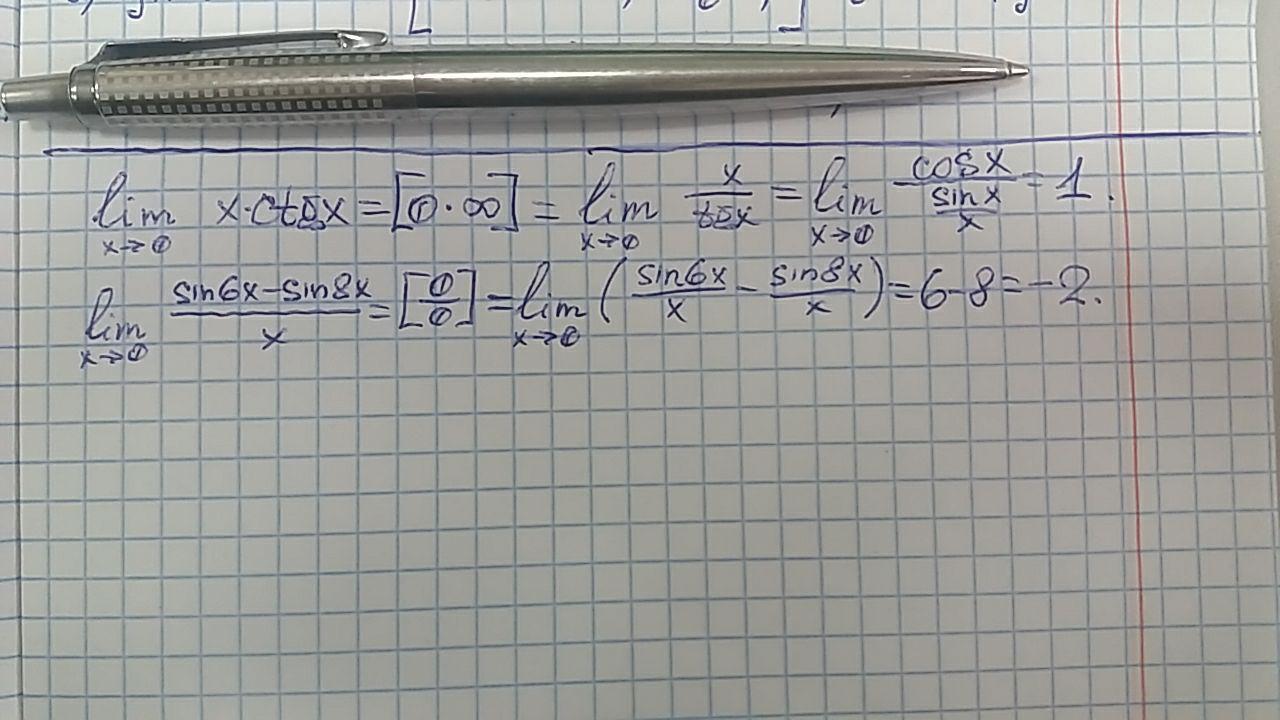 lim x→0 x·ctgx = [0·∞] = lim x→0 x/tgx = lim x→0 cosx/(sinx/x) = 1.
lim x→0 (sin6x-sin8x)/x = [0/0] = lim x→0 (sin6x/x - sin8x/x) = 6-8 = -2.